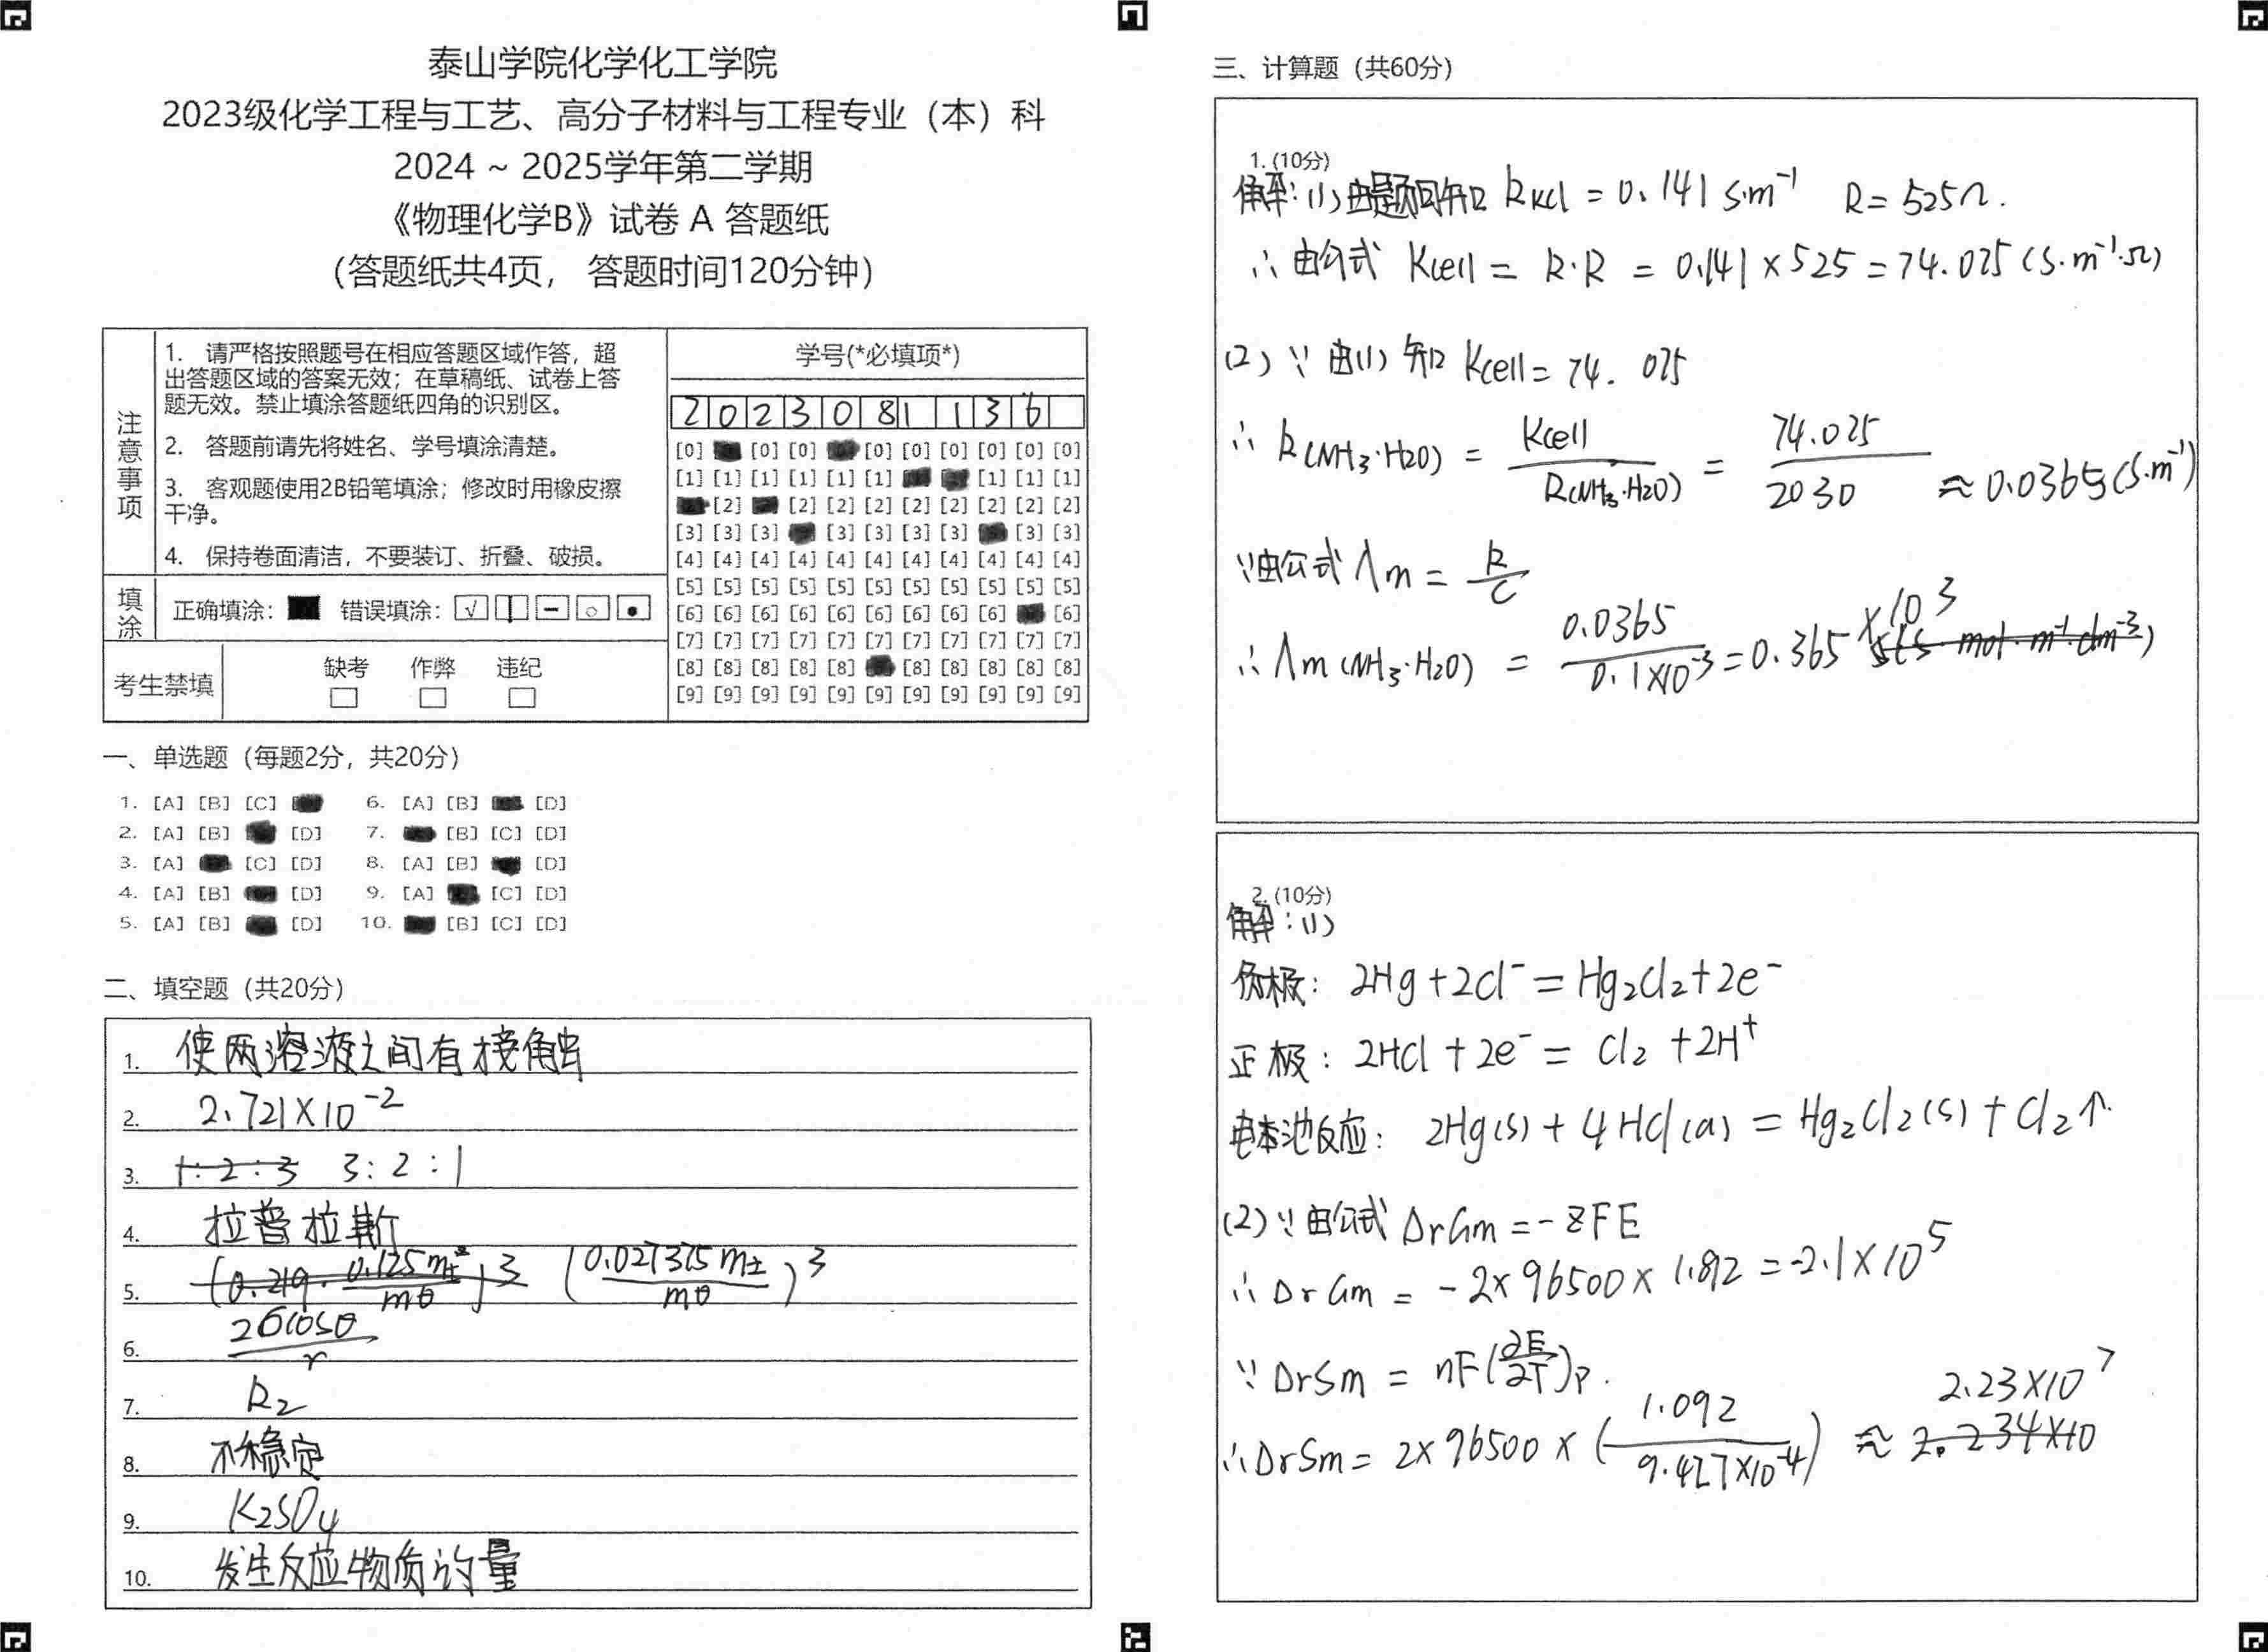 泰山学院化学化工学院
2023级化学工程与工艺、高分子材料与工程专业（本）科
2024 ~ 2025学年第二学期
《物理化学B》试卷 A 答题纸
（答题纸共4页， 答题时间120分钟）
注意事项
1. 请严格按照题号在相应答题区域作答，超
出答题区域的答案无效；在草稿纸、试卷上答
题无效。禁止填涂答题纸四角的识别区。
2. 答题前请先将姓名、学号填涂清楚。
3. 客观题使用2B铅笔填涂；修改时用橡皮擦
干净。
4. 保持卷面清洁，不要装订、折叠、破损。
填涂
正确填涂： 错误填涂：
考生禁填
缺考 作弊 违纪
学号(*必填项*)
2 0 2 3 0 8 1 1 3 6
[0] [0] [0] [0] [0] [0] [0] [0] [0]
[1] [1] [1] [1] [1] [1] [1] [1] [1]
[2] [2] [2] [2] [2] [2] [2] [2] [2]
[3] [3] [3] [3] [3] [3] [3] [3] [3]
[4] [4] [4] [4] [4] [4] [4] [4] [4] [4] [4]
[5] [5] [5] [5] [5] [5] [5] [5] [5] [5] [5]
[6] [6] [6] [6] [6] [6] [6] [6] [6] [6]
[7] [7] [7] [7] [7] [7] [7] [7] [7] [7] [7]
[8] [8] [8] [8] [8] [8] [8] [8] [8] [8]
[9] [9] [9] [9] [9] [9] [9] [9] [9] [9] [9]
一、单选题（每题2分，共20分）
1. [A] [B] [C] 6. [A] [B] [D]
2. [A] [B] [D] 7. [B] [C] [D]
3. [A] [C] [D] 8. [A] [B] [D]
4. [A] [B] [D] 9. [A] [C] [D]
5. [A] [B] [D] 10. [B] [C] [D]
二、填空题（共20分）
1. 使两溶液之间有接触
2. 2.721×10⁻²
3. 1:2:3 3:2:1
4. 拉普拉斯
5. (0.027375m±/mθ)³
6. 2σcosθ/r
7. R₂
8. 不稳定
9. K₂SO₄
10. 发生反应物质的量
三、计算题（共60分）
1. (10分)
解：(1) 由题可知 k KCl = 0.141 S·m⁻¹ R = 525Ω.
∴ 由公式 Kcell = k·R = 0.141×525 = 74.025 (S·m⁻¹·Ω)
(2) ∵ 由(1) 知 Kcell = 74.025
∴ k(NH₃·H₂O) = Kcell/R(NH₃·H₂O) = 74.025/2030 ≈ 0.0365(S·m⁻¹)
∵由公式 Λm = k/c
∴ Λm(NH₃·H₂O) = 0.0365/0.1×10⁻³ = 0.365×10³
2. (10分)
解：(1)
负极： 2Hg + 2Cl⁻ = Hg₂Cl₂ + 2e⁻
正极： 2HCl + 2e⁻ = Cl₂ + 2H⁺
电池反应： 2Hg(s) + 4HCl(a) = Hg₂Cl₂(s) + Cl₂↑.
(2) ∵ 由公式 ΔrGm = -zFE
∴ ΔrGm = -2×96500×1.092 = -2.1×10⁵
∵ ΔrSm = nF(∂E/∂T)p.
∴ ΔrSm = 2×96500×(1.092/9.427×10⁻⁴) ≈ 2.234×10 2.23×10⁷